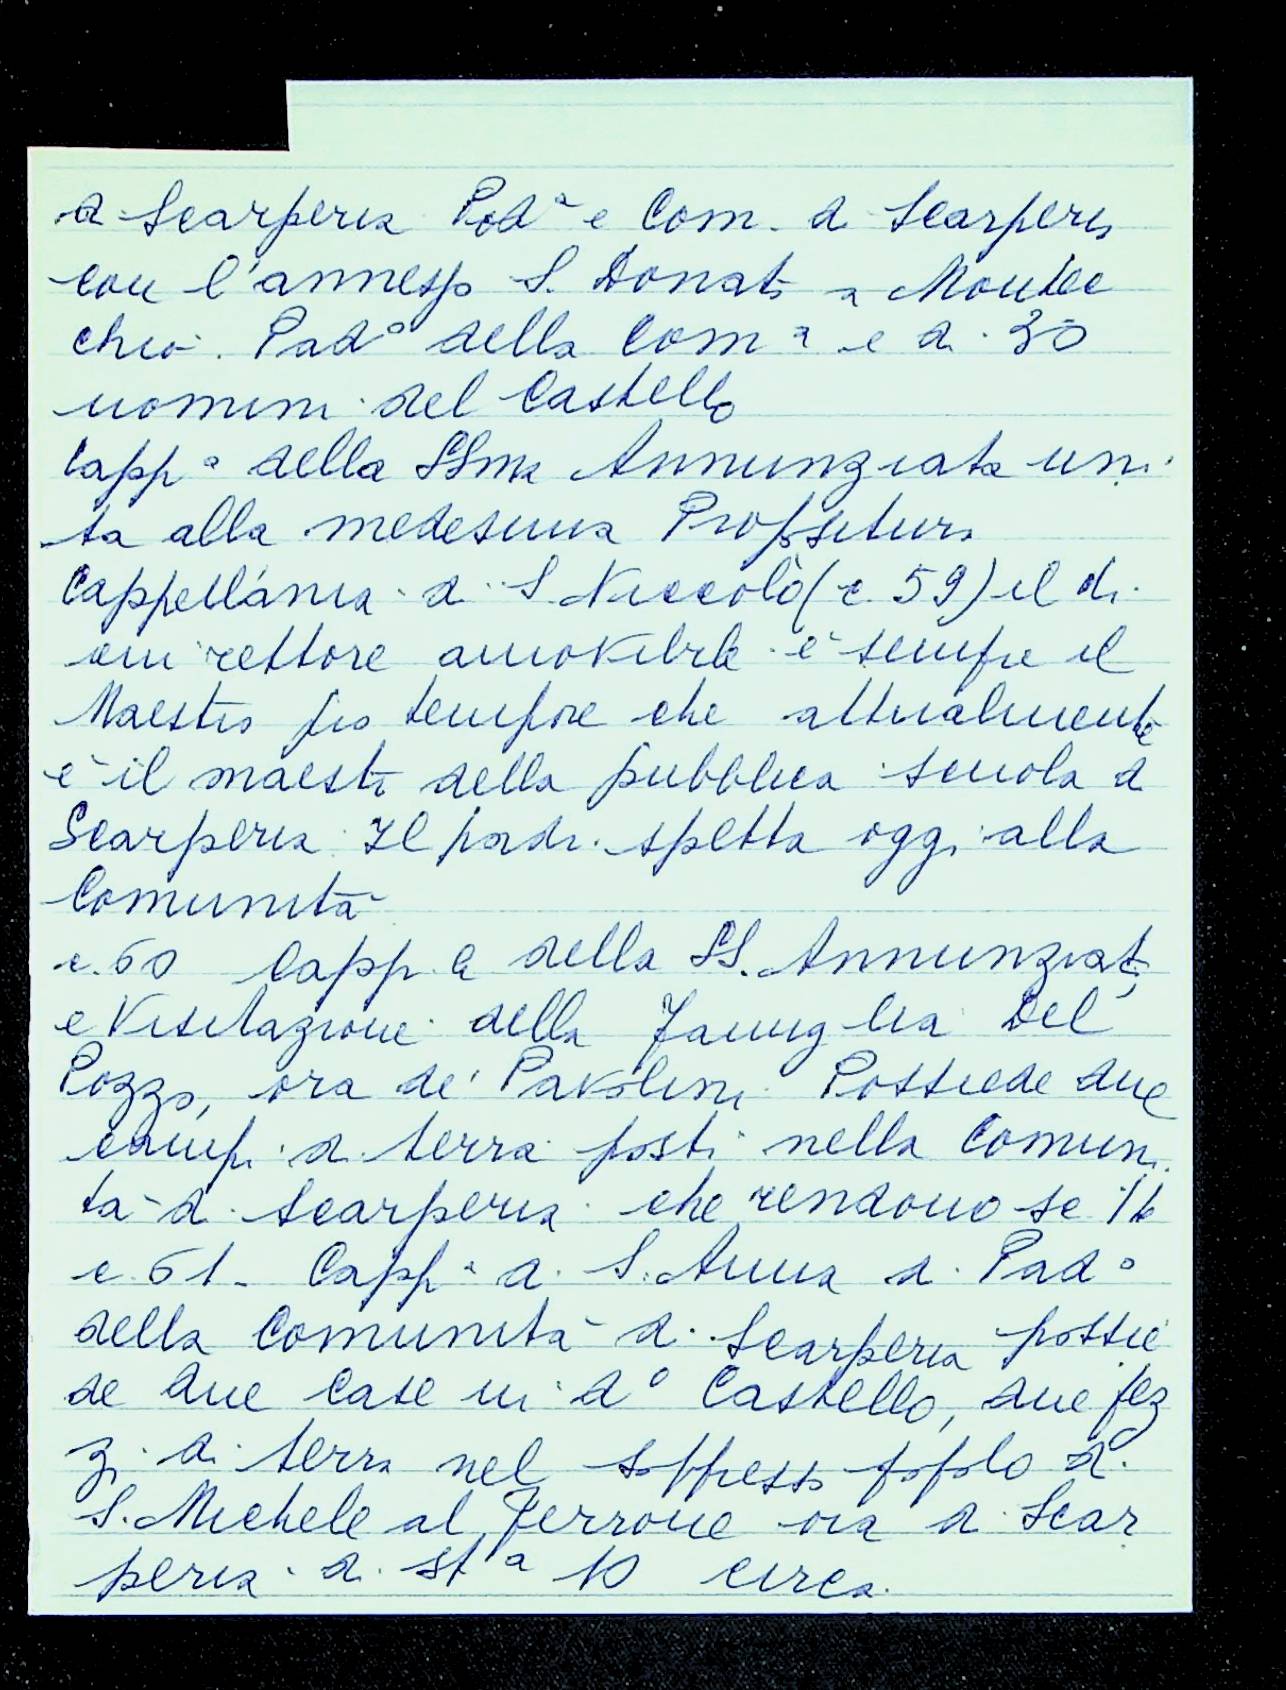 di Scarperia Pod.ª e Com. di Scarperia
con l'annesso S. Donato a Montec
chio. Pad° della Com.ª e di 30
uomini del Castello
Capp.ª della SSma Annunziata uni
ta alla medesima Propositura
Cappellania di S. Niccolò (c. 59) il di
cui rettore amovibile è sempre il
Maestro pro tempore che attualmente
è il maestro della pubblica scuola di
Scarperia. Il padr. spetta oggi alla
Comunità
c. 60 Capp.a della SS. Annunziata
e Visitazione della Famiglia Del
Pozzo, ora de' Pavolini. Possiede due
campi di terra posti nella Comuni
tà di Scarperia che rendono sc 16
c. 61. Capp.ª di S. Anna di Pad°
della Comunità di Scarperia possie
de due case in d° Castello, due pez
zi di terra nel soppresso popolo di
S. Michele al Ferrone ora di Scar
peria di st.ª 10 circa.